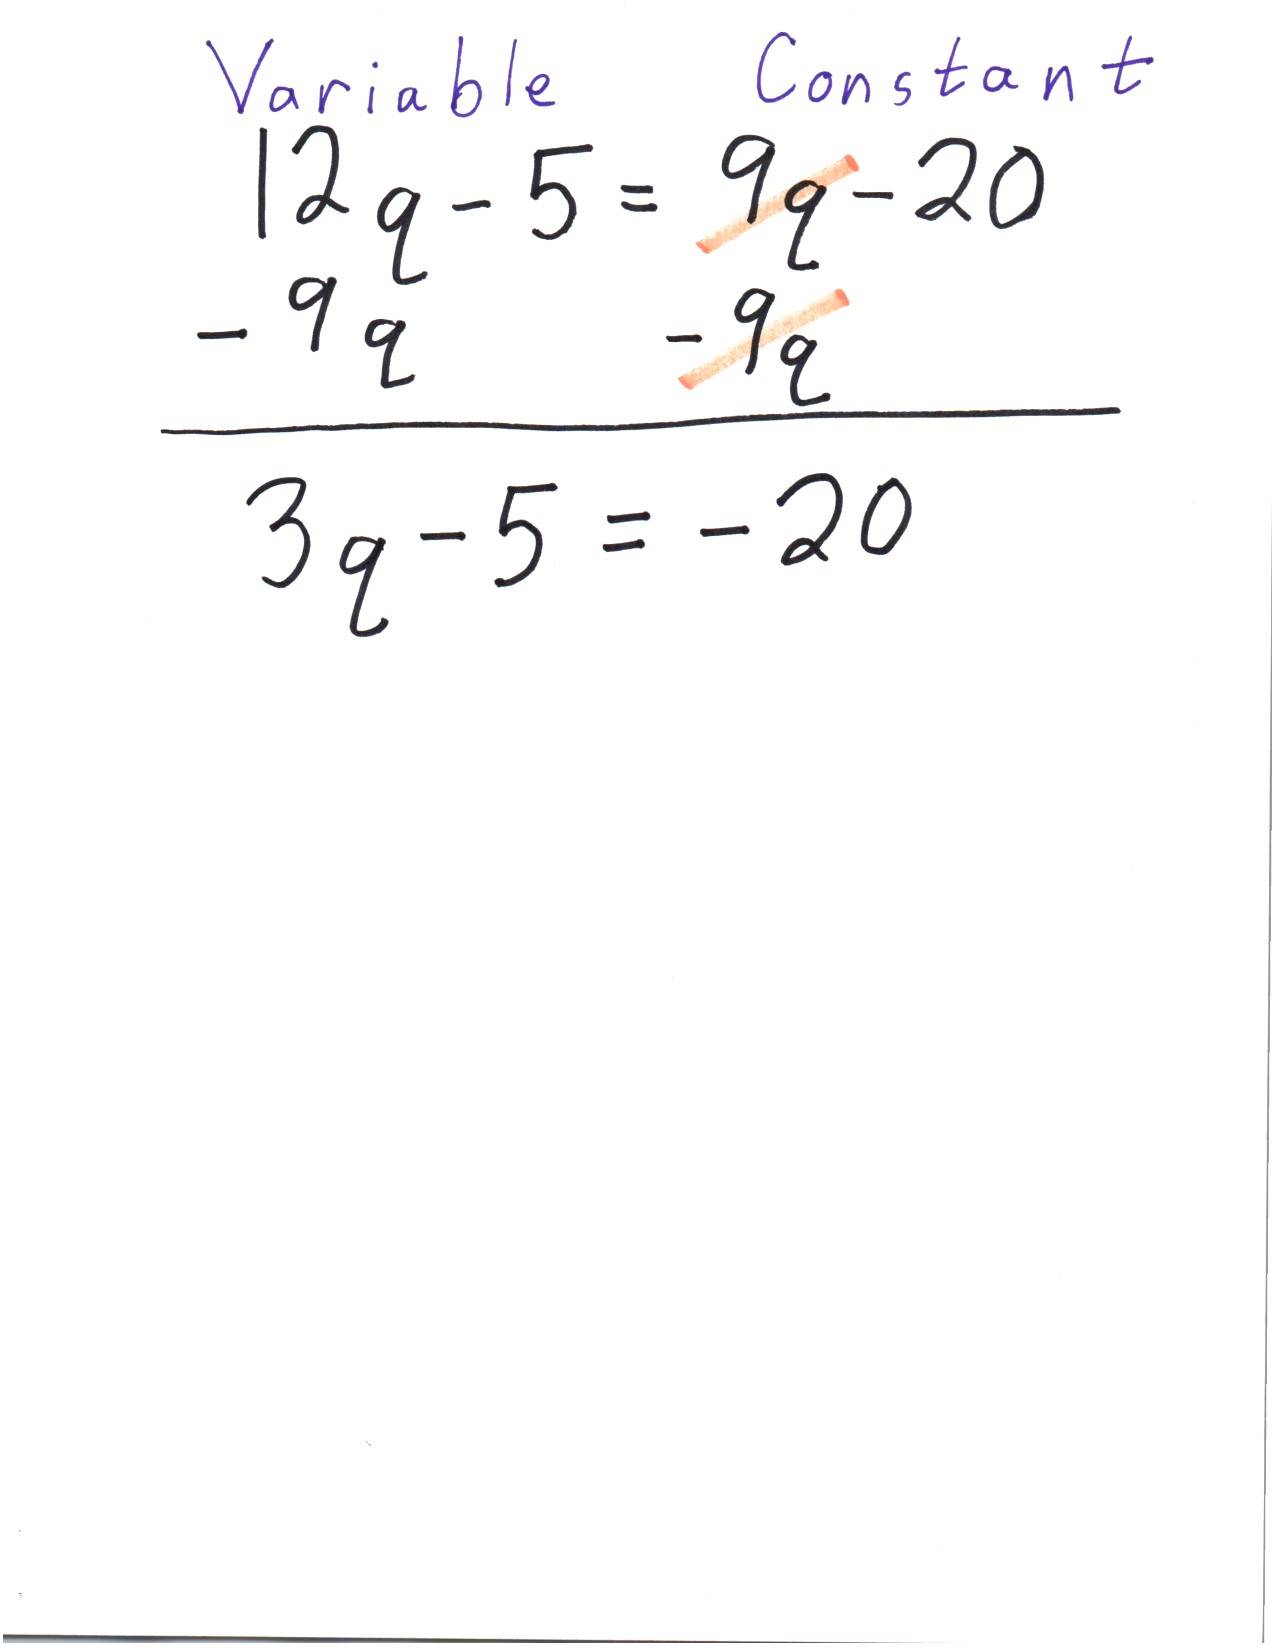 Variable Constant
12q - 5 = 9q - 20
- 9q - 9q
3q - 5 = - 20